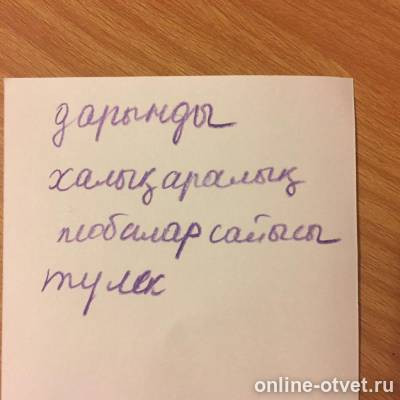 дарынды
халықаралық
жобалар сайысы
түлек
online-otvet.ru